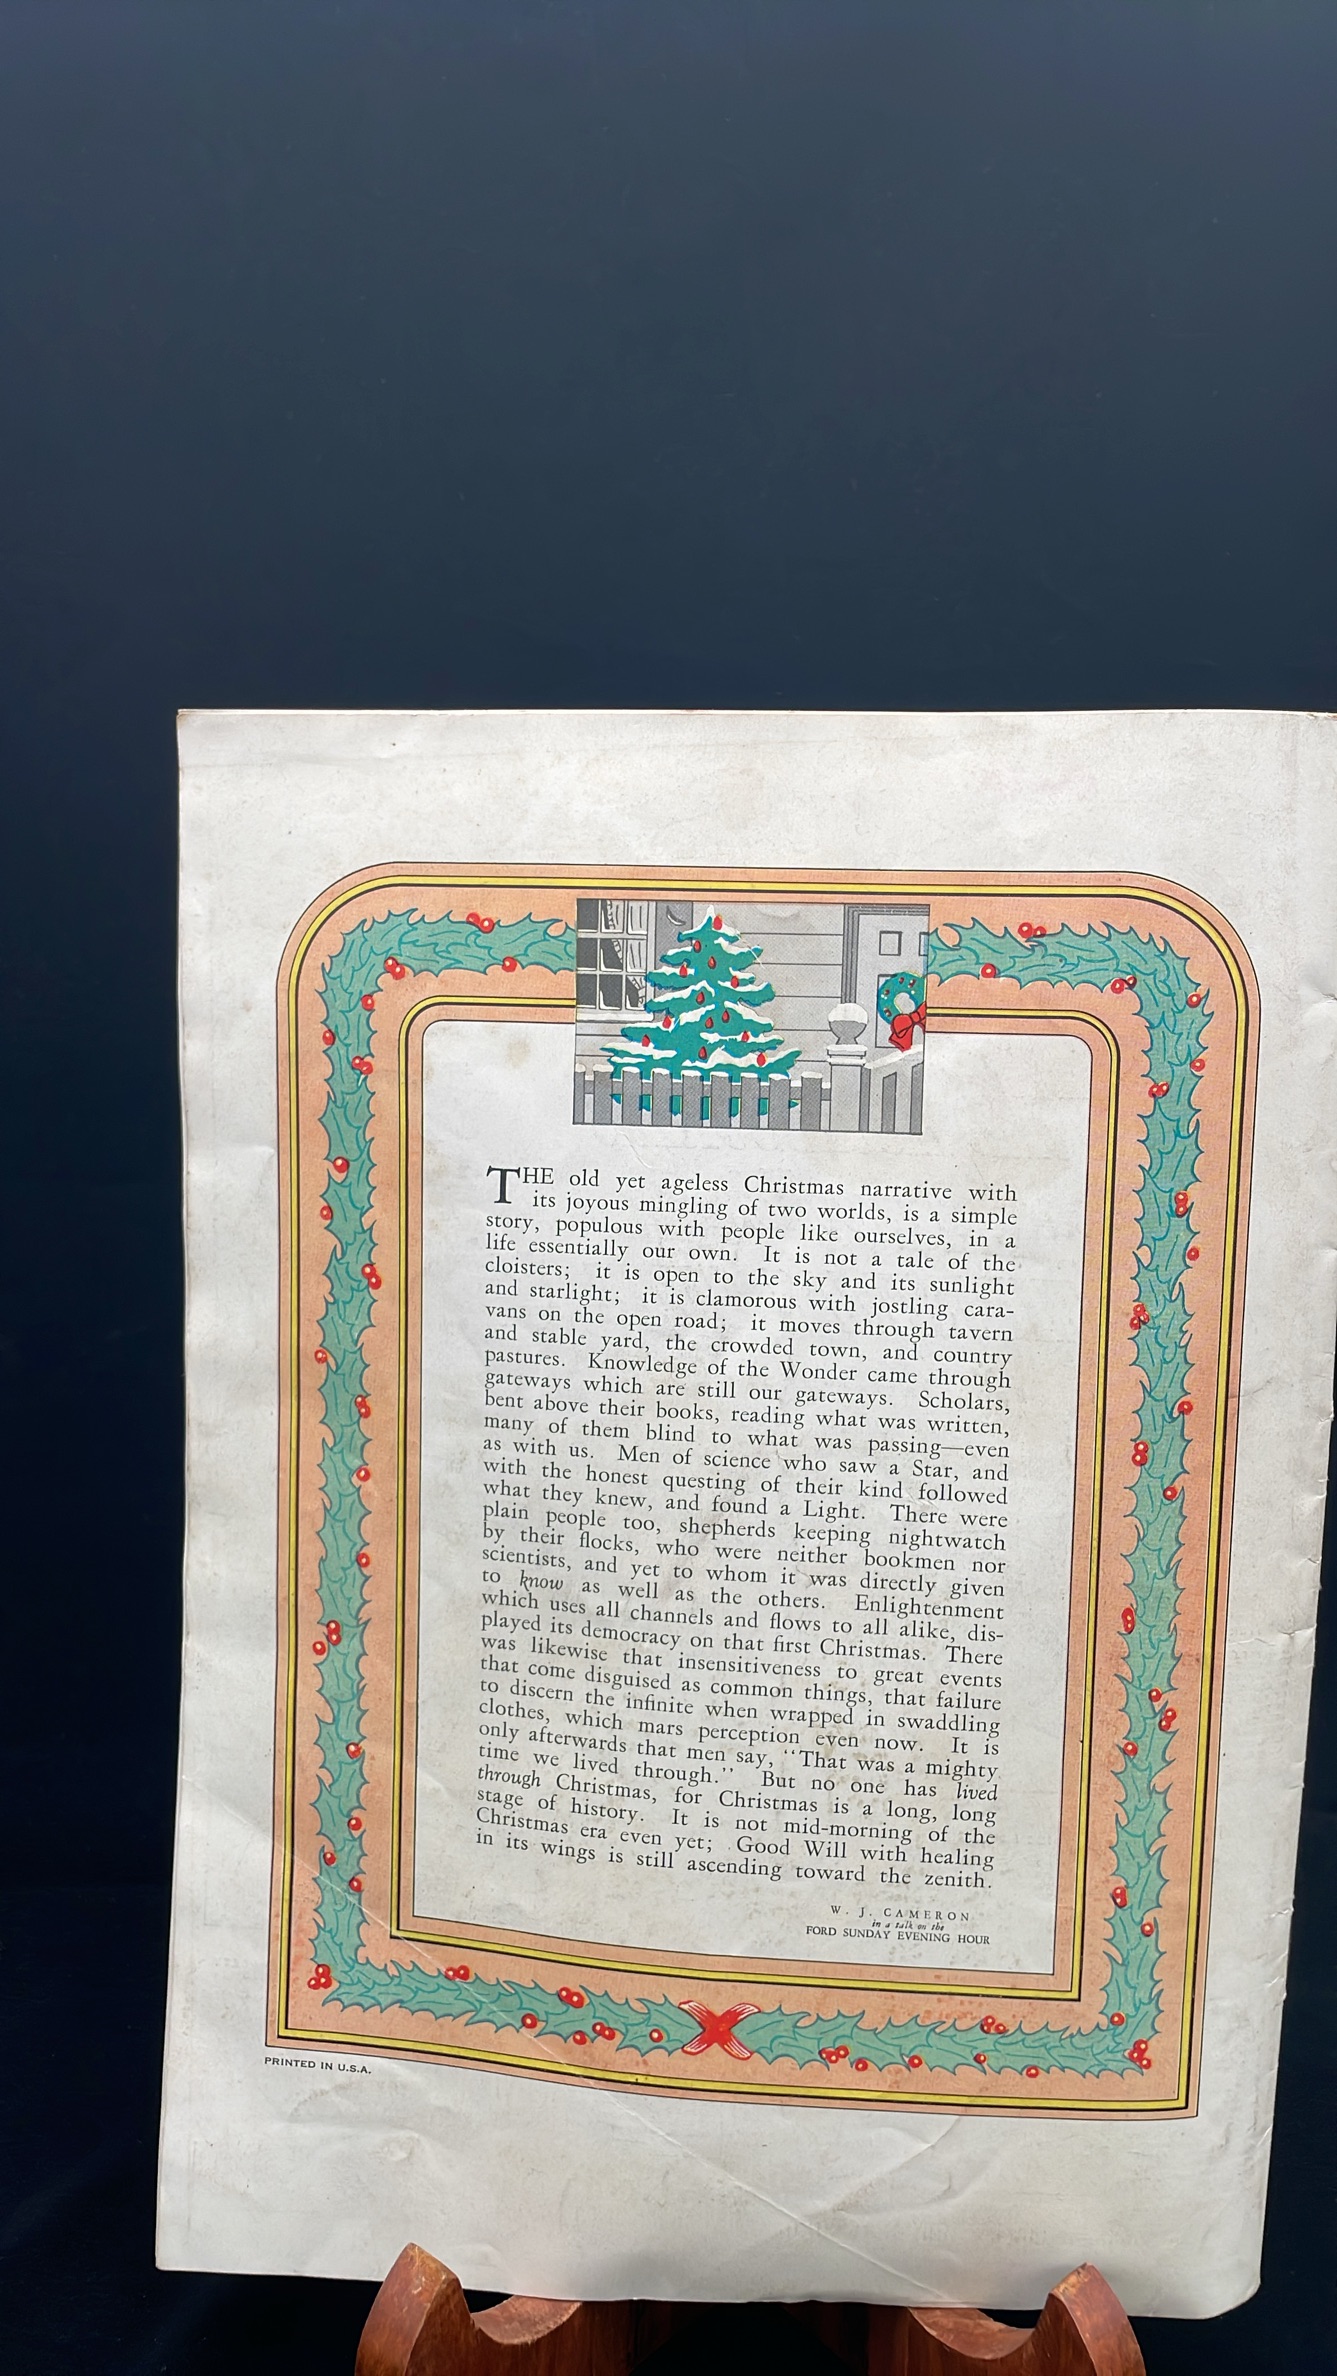 THE old yet ageless Christmas narrative with
its joyous mingling of two worlds, is a simple
story, populous with people like ourselves, in a
life essentially our own. It is not a tale of the
cloisters; it is open to the sky and its sunlight
and starlight; it is clamorous with jostling cara-
vans on the open road; it moves through tavern
and stable yard, the crowded town, and country
pastures. Knowledge of the Wonder came through
gateways which are still our gateways. Scholars,
bent above their books, reading what was written,
many of them blind to what was passing—even
as with us. Men of science who saw a Star, and
with the honest questing of their kind followed
what they knew, and found a Light. There were
plain people too, shepherds keeping nightwatch
by their flocks, who were neither bookmen nor
scientists, and yet to whom it was directly given
to know as well as the others. Enlightenment
which uses all channels and flows to all alike, dis-
played its democracy on that first Christmas. There
was likewise that insensitiveness to great events
that come disguised as common things, that failure
to discern the infinite when wrapped in swaddling
clothes, which mars perception even now. It is
only afterwards that men say, "That was a mighty
time we lived through." But no one has lived
through Christmas, for Christmas is a long, long
stage of history. It is not mid-morning of the
Christmas era even yet; Good Will with healing
in its wings is still ascending toward the zenith.
W. J. CAMERON
in a talk on the
FORD SUNDAY EVENING HOUR
PRINTED IN U.S.A.